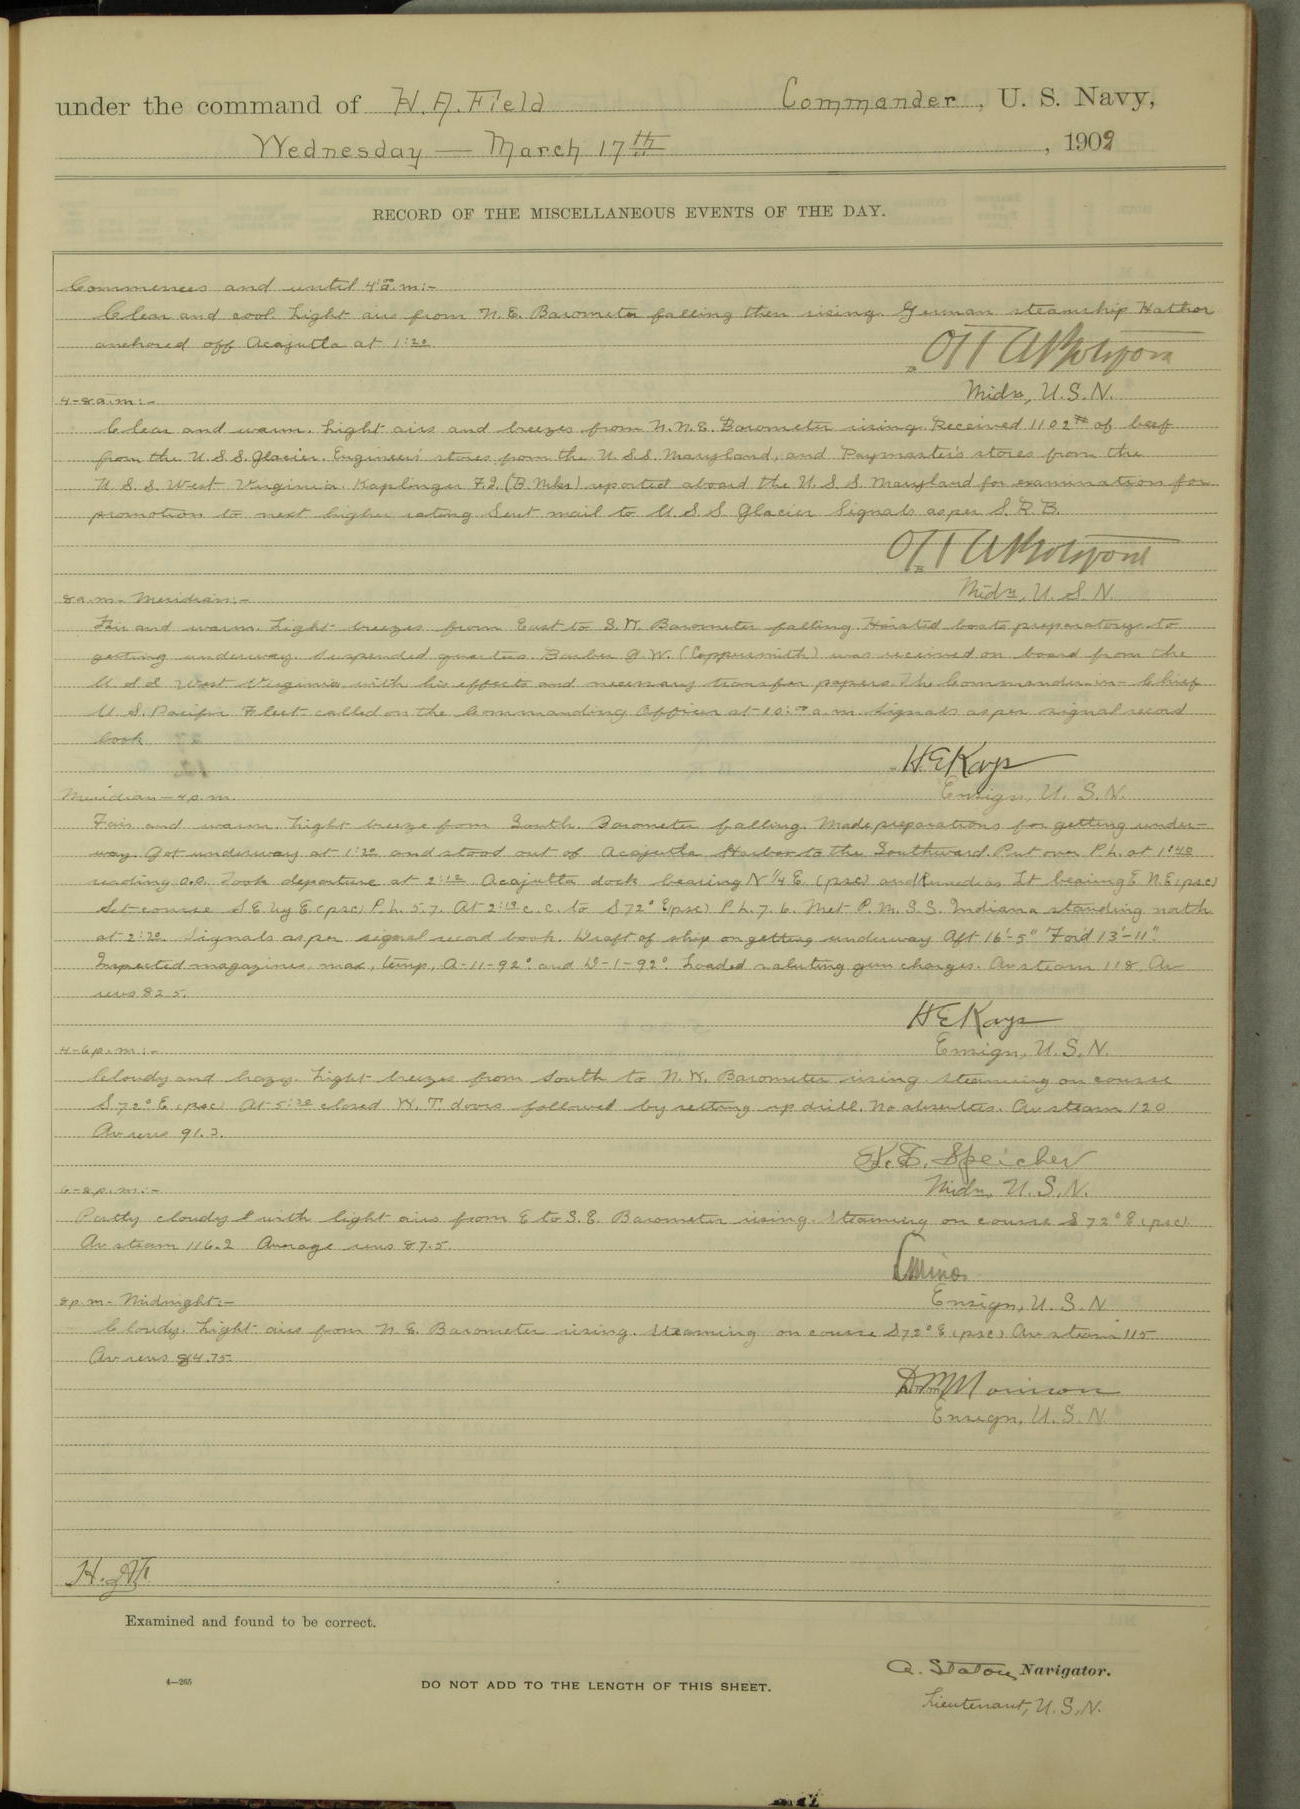 under the command of H. A. Field Commander, U. S. Navy,
Wednesday — March 17th, 1909
RECORD OF THE MISCELLANEOUS EVENTS OF THE DAY.
Commences and until 4 a.m:-
Clear and cool. Light airs from N. E. Barometer falling then rising. German steamship Hathor
anchored off Acajutla at 1:20
Midn, U.S.N.
4-8 a.m:-
Clear and warm. Light airs and breezes from N.N.E. Barometer rising. Received 1102# of beef
from the U.S.S. Glacier. Engineers' stores from the U.S.S. Maryland, and Paymaster's stores from the
U.S.S. West Virginia. Kaplinger F.J. (B. Mkr) reported aboard the U.S.S. Maryland for examination for
promotion to next higher rating Sent mail to U.S.S Glacier Signals as per S.R.B.
Midn, U.S.N
8 a.m.- Meridian:-
Fair and warm. Light breezes from East to S.W. Barometer falling Hoisted boats preparatory to
getting underway. Suspended quarters. Barber G.W. (Coppersmith) was received on board from the
U.S.S West Virginia with his effects and necessary transfer papers. The Commander-in-Chief
U.S. Pacific Fleet called on the Commanding Officer at 10: a.m. Signals as per signal record
book
H E Kays
Ensign, U. S. N.
Meridian — 4 p.m.
Fair and warm. Light breeze from South. Barometer falling. Made preparations for getting under-
way. Got underway at 1:30 and stood out of Acajutla Harbor to the Southward. Put over P.L. at 1:40
reading 0.0. Took departure at 2:12 Acajutla dock bearing N 1/4 E. (psc) and Remedios Lt bearing E N.E (psc)
Set course S.E. by E (psc) P.L. 5.7. At 2:19 c.c. to S 72° E (psc) P.L. 7.6. Met P.M.S.S. Indiana standing north
at 2:30. Signals as per signal record book. Draft of ship on getting underway Aft 16'-5" Ford 13'-11".
Inspected magazines, max, temp, A-11-92° and D-1-92°. Loaded saluting gun charges. Av steam 118 Av
revs 82.5.
H E Kays
Ensign, U.S.N.
4-6 p.m:-
Cloudy and hazy. Light breezes from South to N.W. Barometer rising. Steaming on course
S 72° E (psc) At 5:30 closed W. T. doors followed by setting up drill. No absentees. Av steam 120
Av revs 91.3.
K. E. Speicher
Midn, U.S.N.
6-8 p.m:-
Partly cloudy with light airs from E to S.E. Barometer rising. Steaming on course S 72° E (psc)
Av steam 116.2 Average revs 87.5.
Ensign, U.S.N
8 p.m- Midnight:-
Cloudy. Light airs from N.E. Barometer rising. Steaming on course S 72° E (psc) Av steam 115
Av revs 84.75.
Morrison
Ensign, U.S.N
Examined and found to be correct.
A. Staton Navigator.
4—265 DO NOT ADD TO THE LENGTH OF THIS SHEET.
Lieutenant, U.S.N.